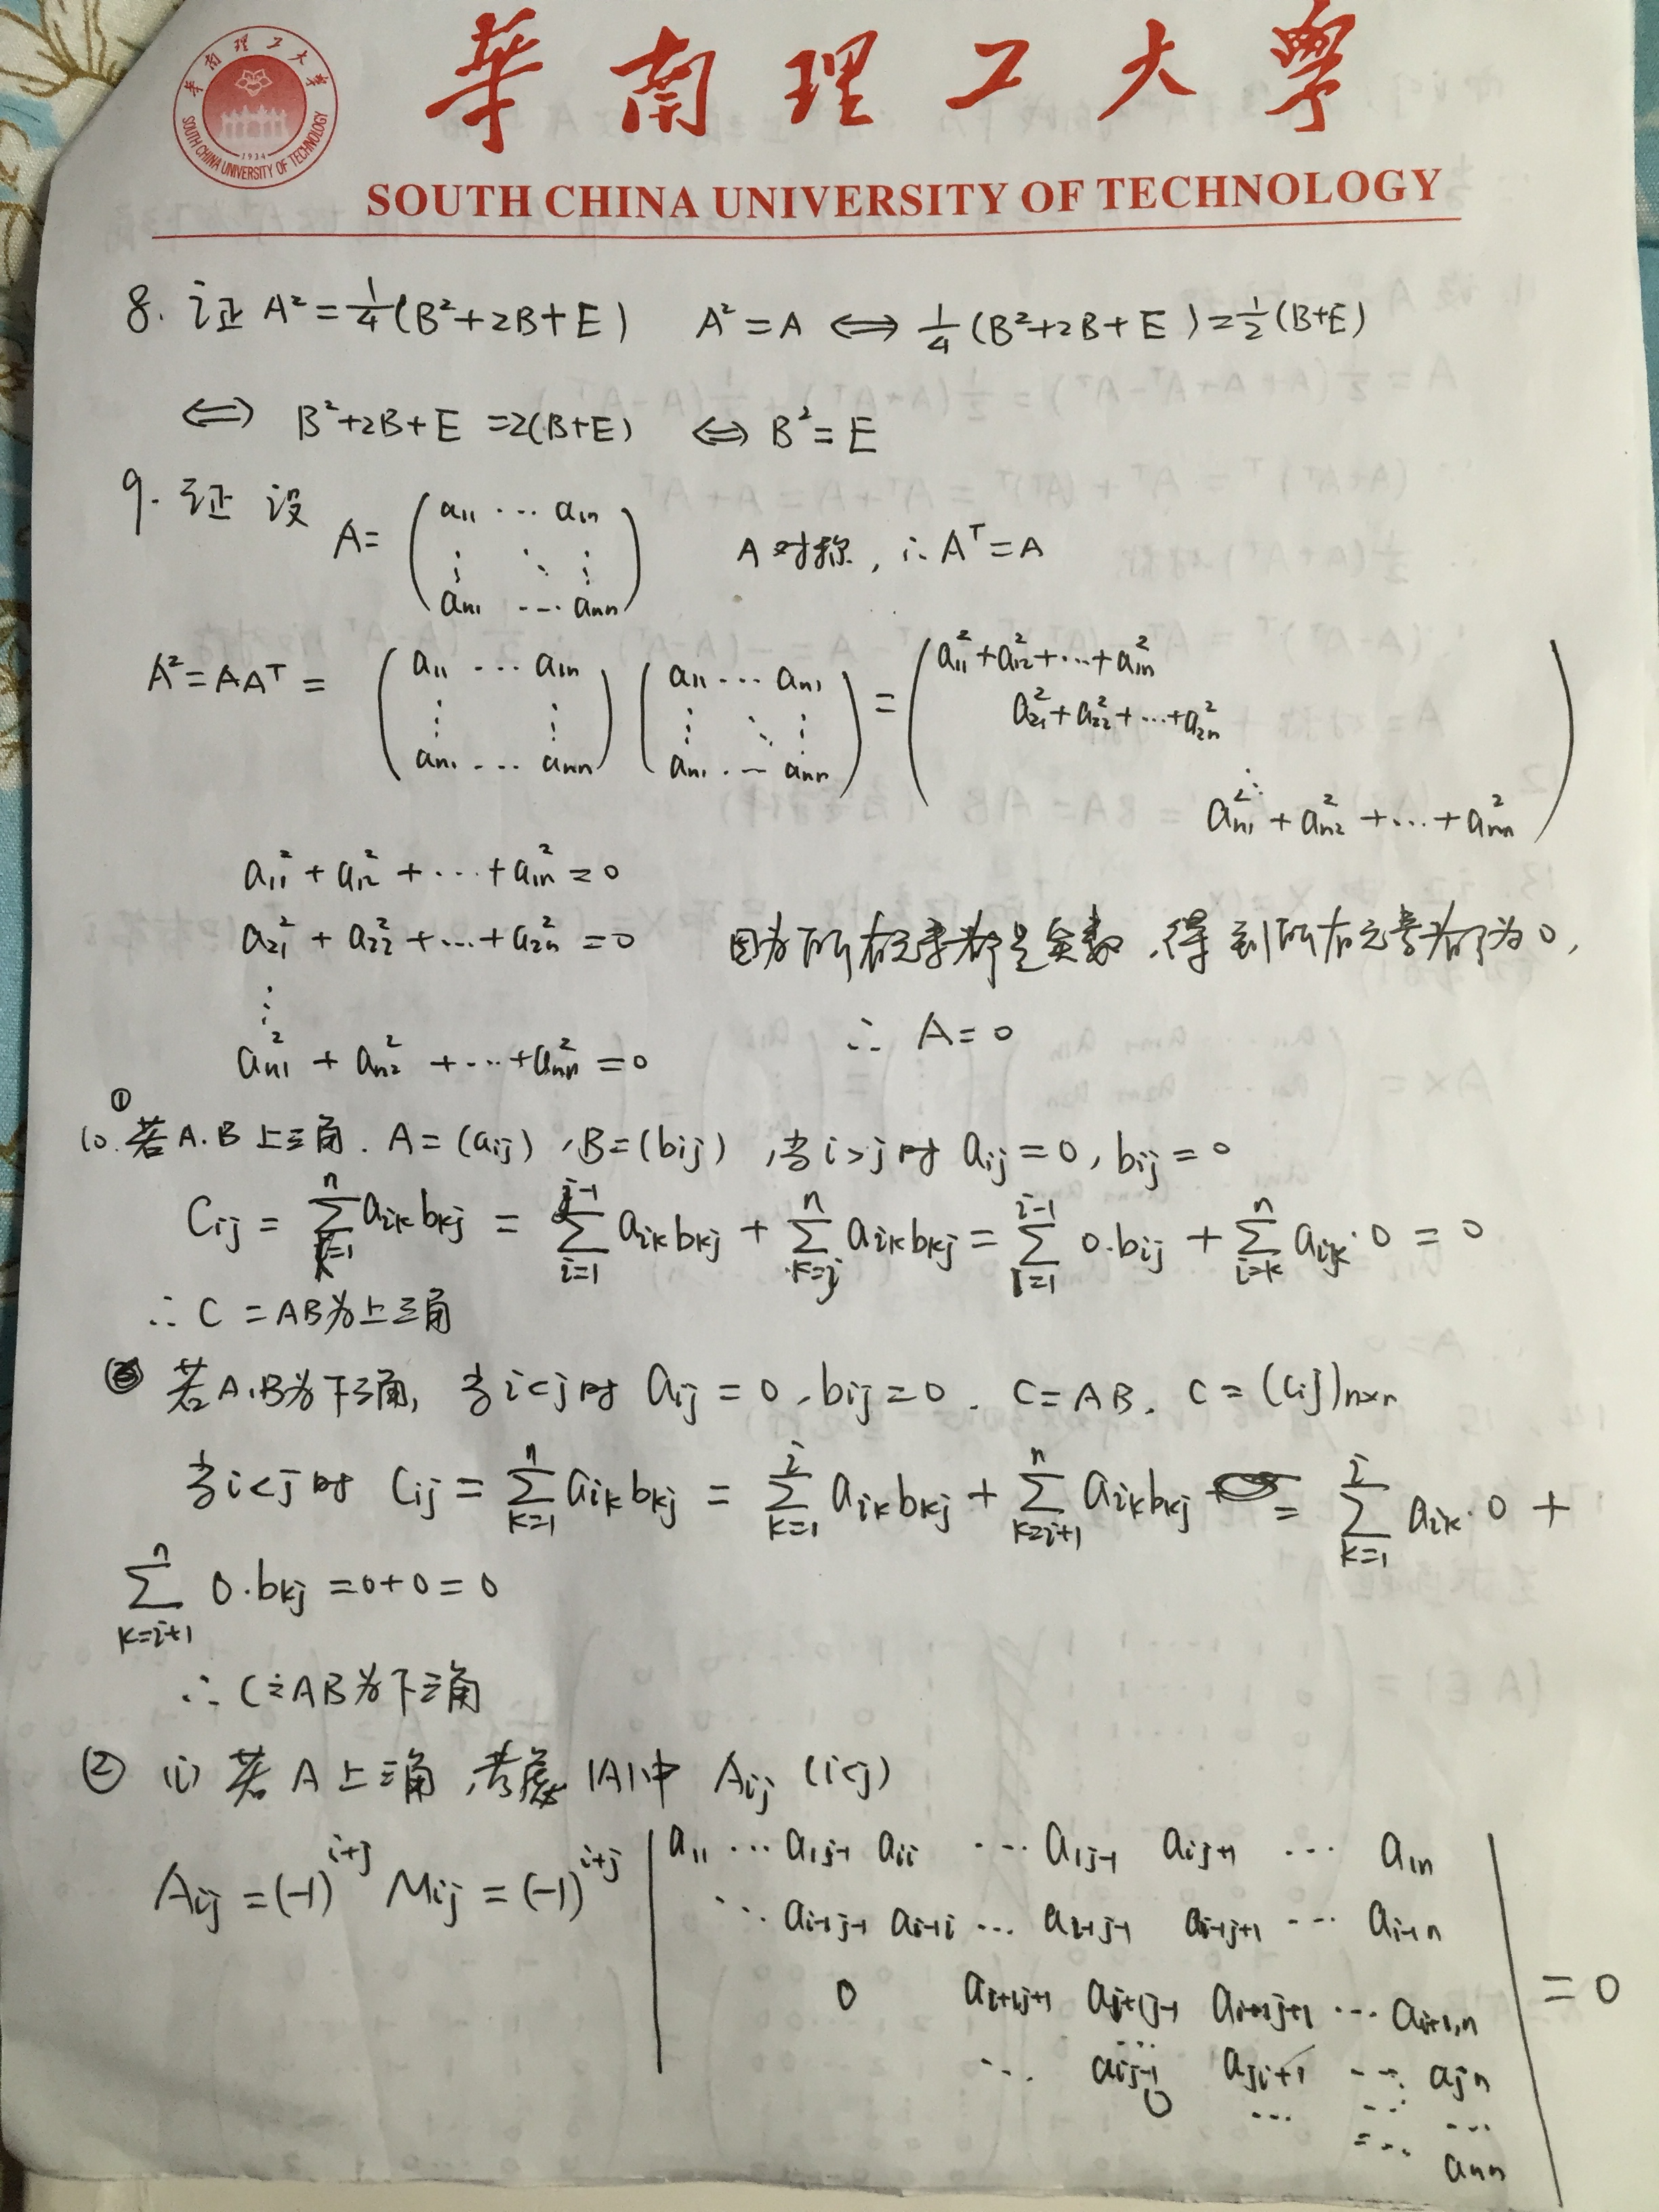 華南理工大學
SOUTH CHINA UNIVERSITY OF TECHNOLOGY
8. 证 A²=¼(B²+2B+E) A²=A ⟺ ¼(B²+2B+E)=½(B+E)
⟺ B²+2B+E=2(B+E) ⟺ B²=E
9. 证 设 A= (a₁₁ ⋯ a₁ₙ ⋮ ⋱ ⋮ aₙ₁ ⋯ aₙₙ) A对称, ∴Aᵀ=A
A²=AAᵀ= (a₁₁ ⋯ a₁ₙ ⋮ ⋮ aₙ₁ ⋯ aₙₙ) (a₁₁ ⋯ aₙ₁ ⋮ ⋱ ⋮ aₙ₁ ⋯ aₙₙ) = (a₁₁²+a₁₂²+⋯+a₁ₙ² a₂₁²+a₂₂²+⋯+a₂ₙ² ⋱ aₙ₁²+aₙ₂²+⋯+aₙₙ²)
a₁₁²+a₁₂²+⋯+a₁ₙ²=0
a₂₁²+a₂₂²+⋯+a₂ₙ²=0 因为所有元素都是实数,得到所有元素都为0,
⋮
∴ A=0
aₙ₁²+aₙ₂²+⋯+aₙₙ²=0
10. ① 若A.B上三角. A=(aij), B=(bij), 当i>j时 aij=0, bij=0
Cij = ∑(k=1→n) aik bkj = ∑(i=1→j-1) aik bkj + ∑(k=j→n) aik bkj = ∑(i=1→i-1) 0·bij + ∑(i=k→n) aik·0 = 0
∴ C=AB为上三角
若A,B为下三角, 当i<j时 aij=0, bij=0. C=AB. C=(Cij)n×n
当i<j时 Cij = ∑(k=1→n) aik bkj = ∑(k=1→i) aik bkj + ∑(k=i+1→n) aik bkj = ∑(k=1→i) aik·0 +
∑(k=i+1→n) 0·bkj =0+0=0
∴ C=AB为下三角
② (i) 若A上三角, 考虑|A|中 Aij (i<j)
Aij=(-1)^(i+j) Mij=(-1)^(i+j) | a₁₁ ⋯ a1j-1 aii ⋯ a1j-1 aij+1 ⋯ a1n
⋱ ai-1j-1 ai-1i ⋯ ai-1j-1 ai-1j+1 ⋯ ai-1n
0 ai+1j+1 aj+1j-1 ai+1j+1 ⋯ ai+1,n | =0
⋱ aij-1 aji+1 ⋯ ajn
0 ⋯ ⋯ ⋯
⋯ ann